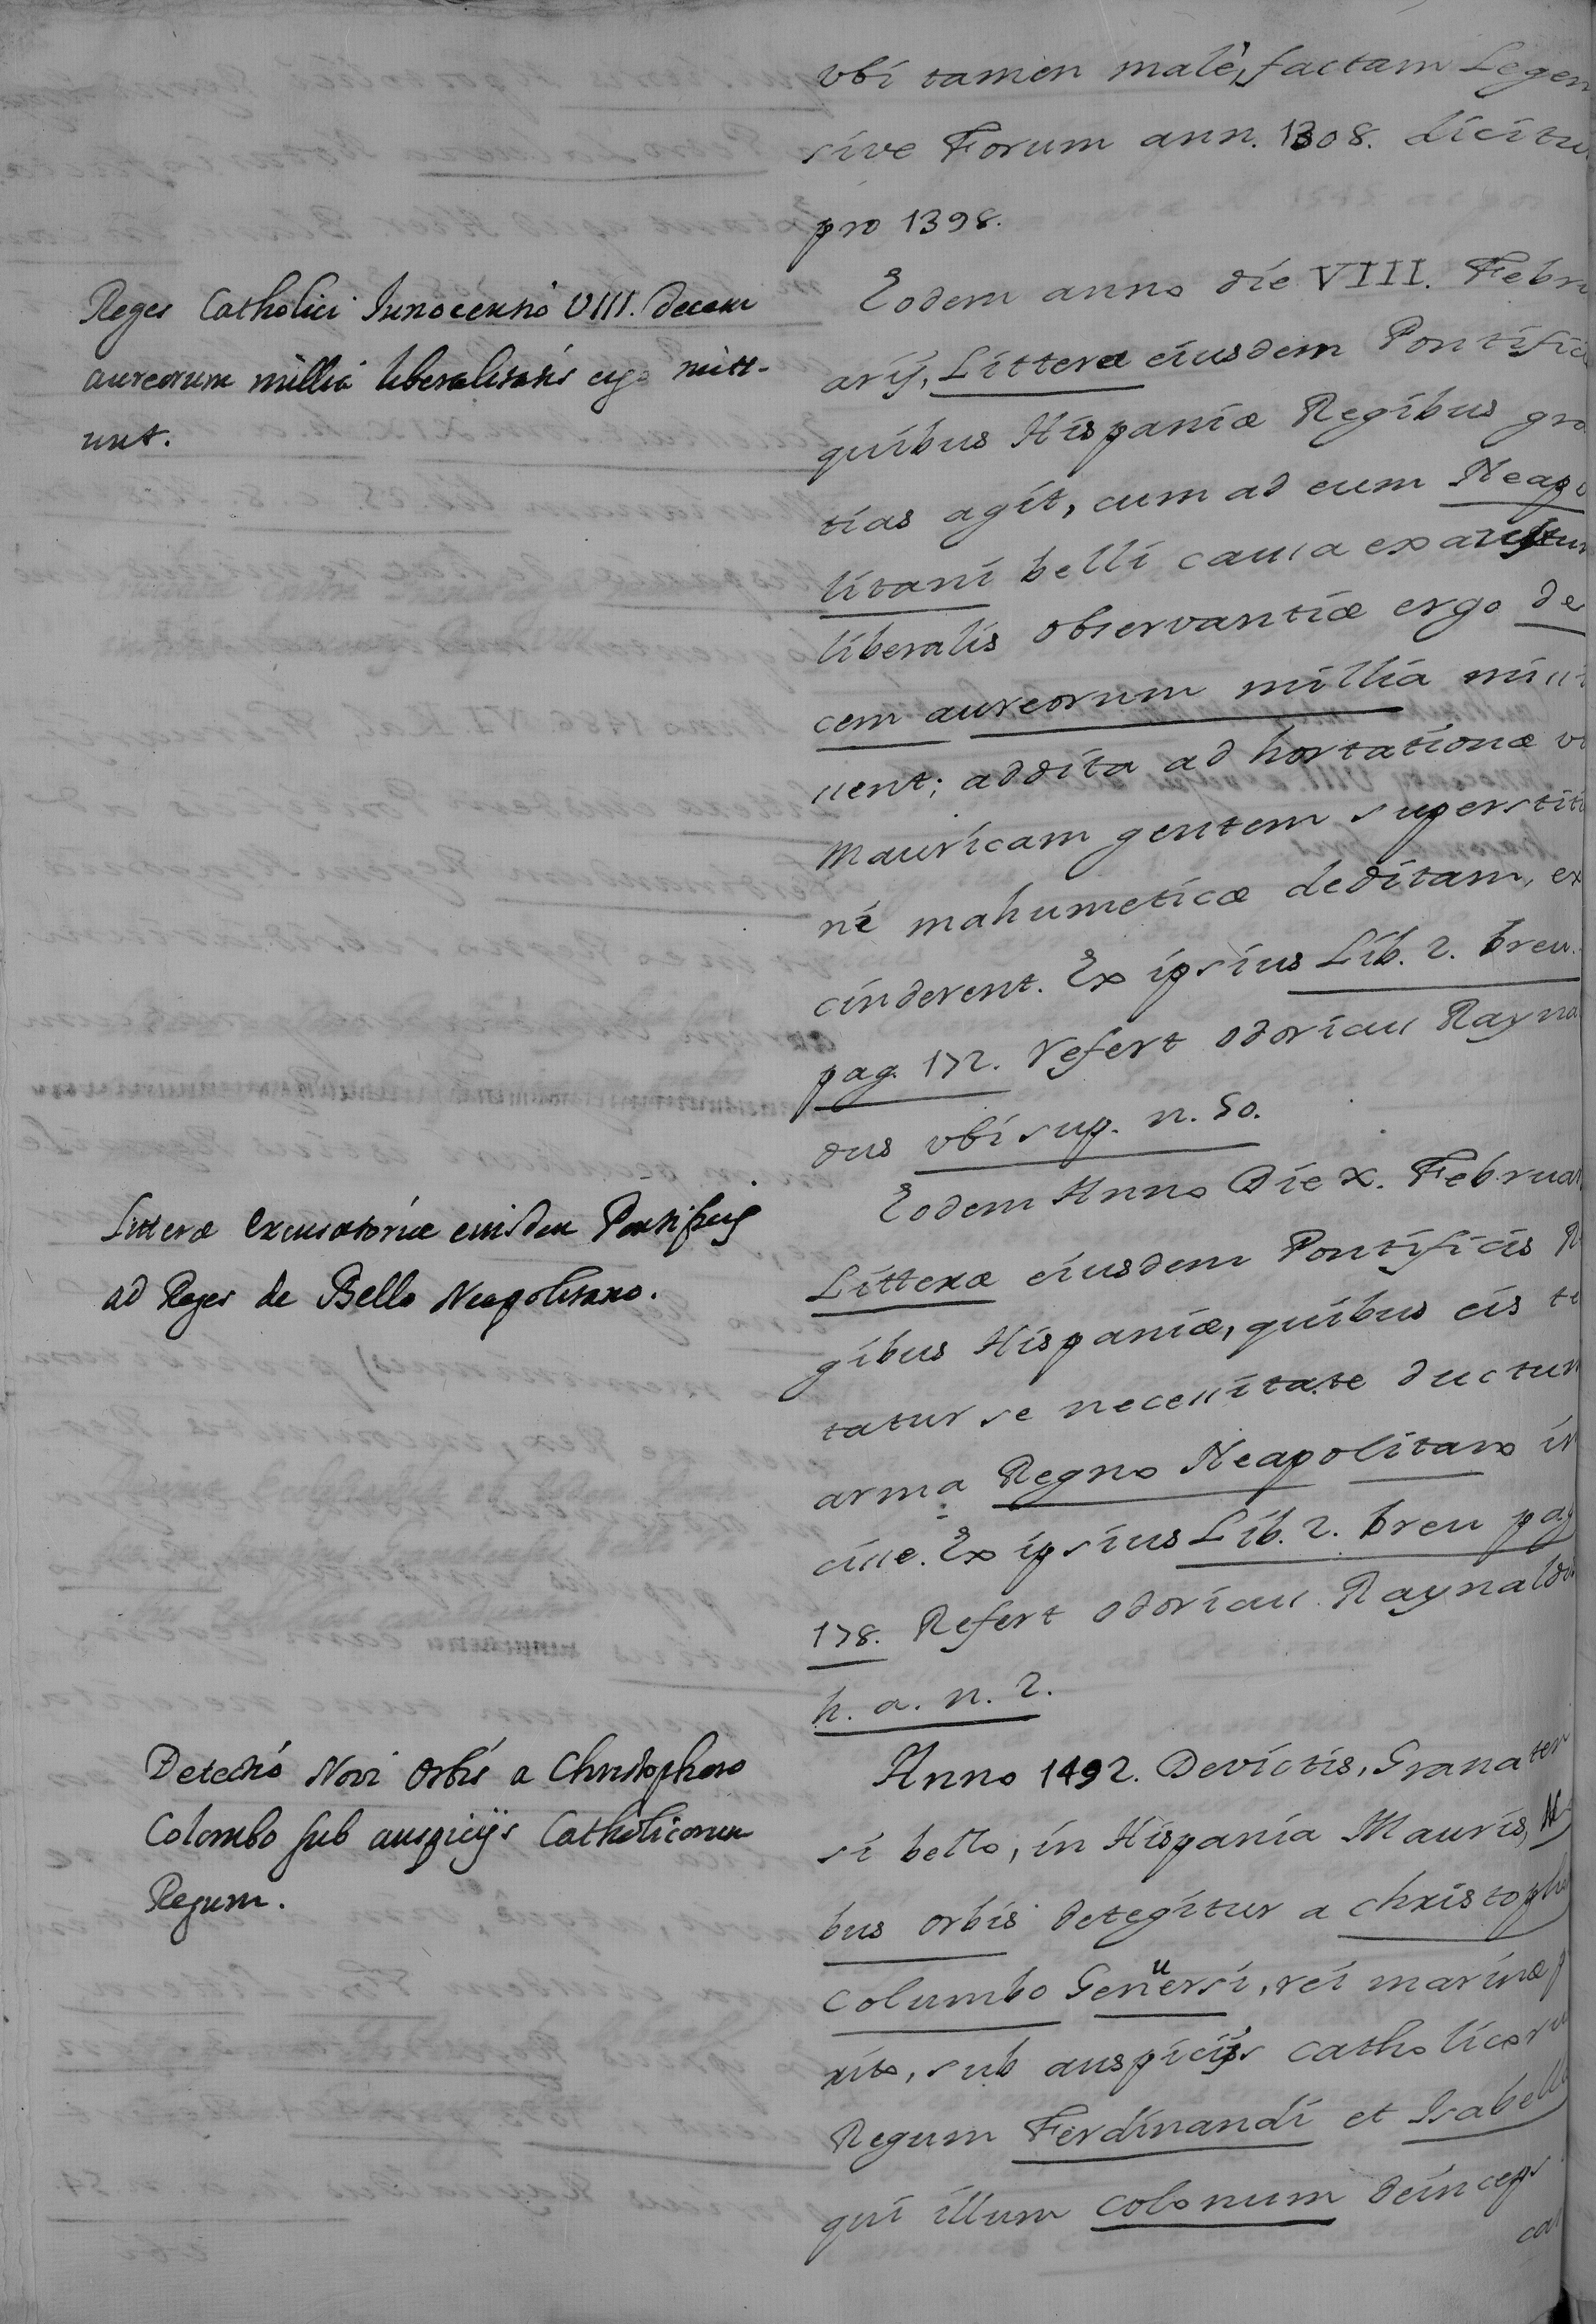 ubi tamen malè, factam Legem
sive Forum ann. 1308. dicitu
pro 1398.
Reges Catholici Innocentio VIII. decem
aureorum millia liberalitatis ergo mitt-
unt.
Eodem anno die VIII. Febru
arij, Litteræ eiusdem Pontific
quibus Hispaniæ Regibus gra
tias agit, cum ad eum Neapo
litani belli caussa
liberalis observantiæ ergo de
cem aureorum millia missi
ssent; addita adhortatione ut
Mauricam gentem superstitio
ni mahumeticæ deditam, ex
cinderent. Ex ipsius Lib. 2. breu.
pag. 172. refert Odoricus Rayna
dus ubi sup. n. 50.
Litteræ excusatoriæ eiusdem Pontificis
ad Reges de Bello Neapolitano.
Eodem Anno Die X. Februar
Litteræ eiusdem Pontificis Re
gibus Hispaniæ, quibus eis te
tatur se necessitate ductum
arma Regno Neapolitano in
cisse. Ex ipsius Lib. 2. breu pag
178. Refert Odoricus Raynald
h. a. n. 2.
Detectio Novi Orbis a Christophoro
Colombo sub auspicijs Catholicorum
Regum.
Anno 1492. Devictis, Granaten
si bello, in Hispania Mauris, No
bus orbis detegitur a Christopho
Columbo Genuensi, rei marinæ p
rito, sub auspicijs Catholicoru
Regum Ferdinandi et Isabell
qui illum Colonum deinceps
cal